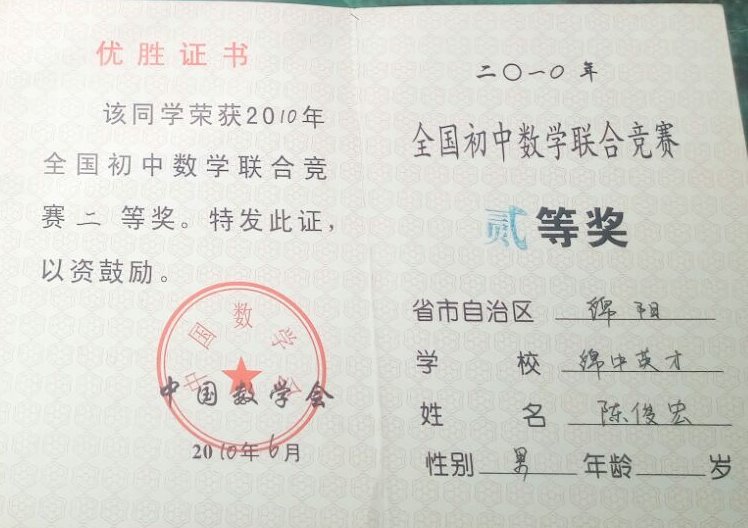 优胜证书
该同学荣获2010年
全国初中数学联合竞
赛二等奖。特发此证，
以资鼓励。
中国数学会
中国数学会
2010年6月
二〇一〇年
全国初中数学联合竞赛
贰等奖
省市自治区 绵阳
学校 绵中英才
姓名 陈俊宏
性别 男 年龄 岁